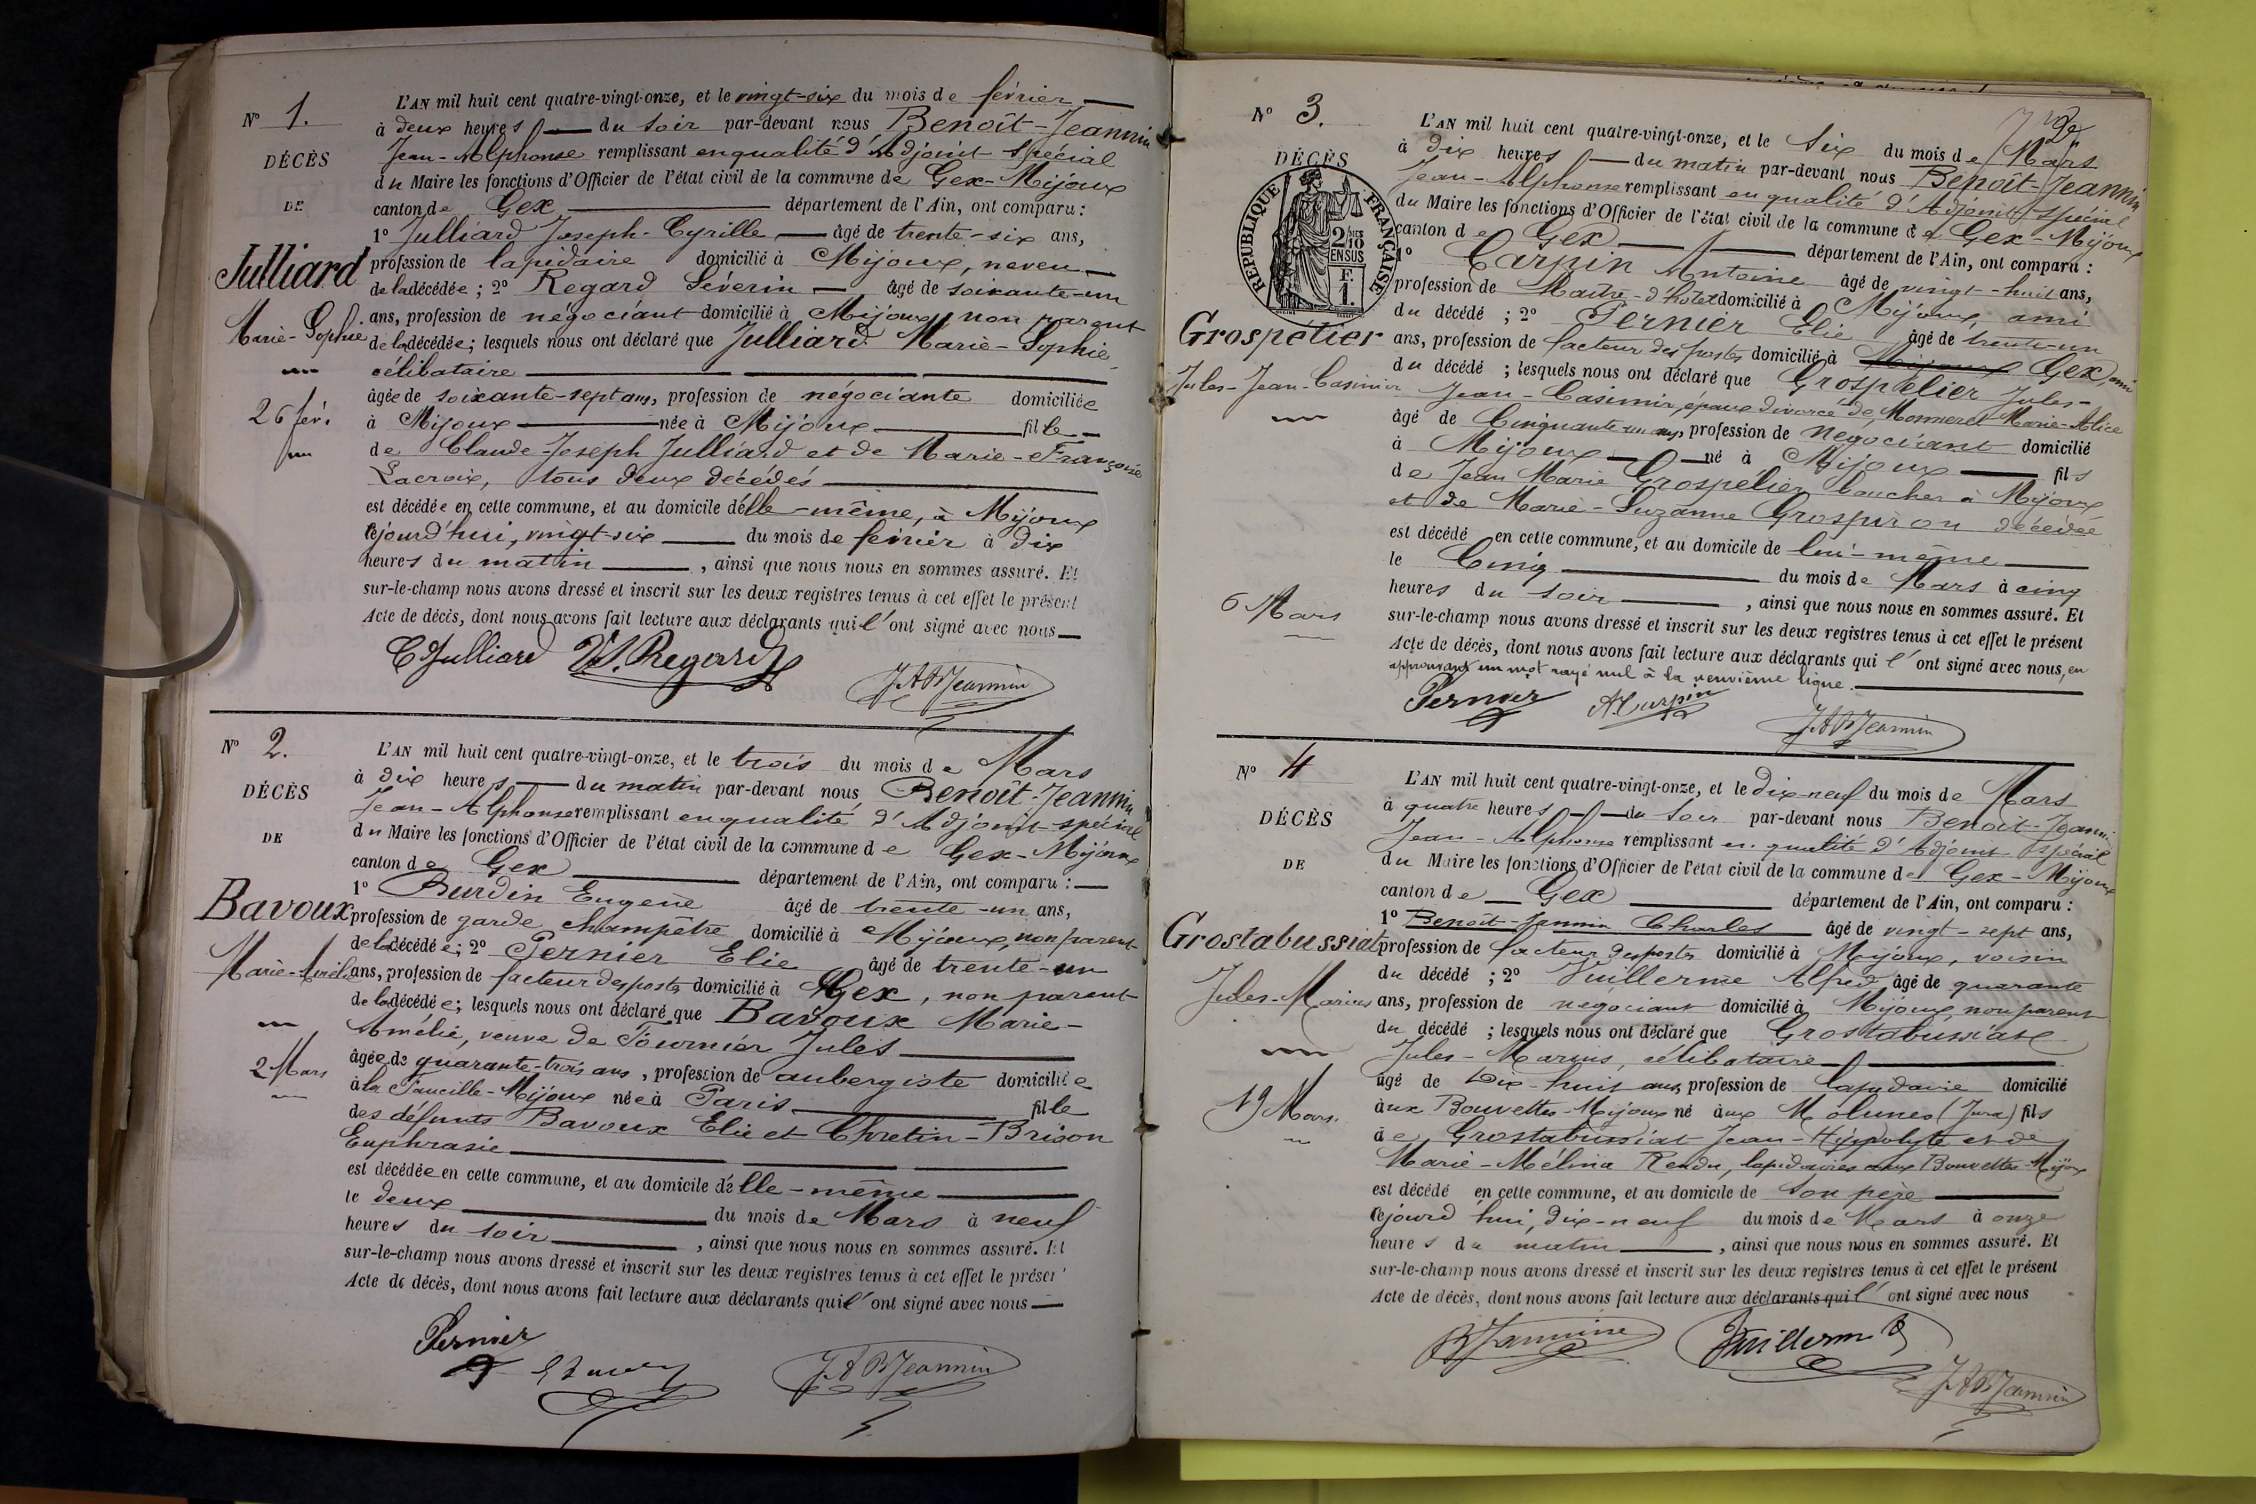 N° 1.
DÉCÈS
DE
Julliard
Marie-Sophie
26 fév.
L'AN mil huit cent quatre-vingt-onze, et le vingt-six du mois de février
à deux heures du soir par-devant nous Benoît-Jeannin
Jean-Alphonse remplissant en qualité d'Adjoint spécial
du Maire les fonctions d'Officier de l'état civil de la commune de Gex-Mijoux
canton de Gex département de l'Ain, ont comparu :
1° Julliard Joseph-Cyrille âgé de trente-six ans,
profession de lapidaire domicilié à Mijoux, neveu
de la décédée ; 2° Regard Séverin âgé de soixante-un
ans, profession de négociant domicilié à Mijoux, non parent
de la décédée ; lesquels nous ont déclaré que Julliard Marie-Sophie
célibataire
âgée de soixante-sept ans, profession de négociante domiciliée
à Mijoux née à Mijoux fille
de Claude-Joseph Julliard et de Marie-Françoise
Lacroix, tous deux décédés
est décédée en cette commune, et au domicile d'elle-même, à Mijoux
cejourd'hui, vingt-six du mois de février à dix
heures du matin, ainsi que nous nous en sommes assuré. Et
sur-le-champ nous avons dressé et inscrit sur les deux registres tenus à cet effet le présent
Acte de décès, dont nous avons fait lecture aux déclarants qui l'ont signé avec nous
C. Julliard Regard J A B Jeannin
N° 2.
DÉCÈS
DE
Bavoux
2 Mars
L'AN mil huit cent quatre-vingt-onze, et le trois du mois de Mars
à dix heures du matin par-devant nous Benoît-Jeannin
Jean-Alphonse remplissant en qualité d'Adjoint spécial
du Maire les fonctions d'Officier de l'état civil de la commune de Gex-Mijoux
canton de Gex département de l'Ain, ont comparu :
1° Burdin Eugène âgé de trente-un ans,
profession de garde champêtre domicilié à Mijoux, non parent
de la décédée ; 2° Pernier Elie âgé de trente-un
ans, profession de facteur des postes domicilié à Gex, non parent
de la décédée ; lesquels nous ont déclaré que Bavoux Marie-
Amélie, veuve de Fournier Jules
âgée de quarante-trois ans, profession de aubergiste domiciliée
à la Faucille-Mijoux née à Paris fille
des défunts Bavoux Elie et Chretin-Brison
Euphrasie
est décédée en cette commune, et au domicile d'elle-même
le deux du mois de Mars à neuf
heures du soir, ainsi que nous nous en sommes assuré. Et
sur-le-champ nous avons dressé et inscrit sur les deux registres tenus à cet effet le présent
Acte de décès, dont nous avons fait lecture aux déclarants qui l'ont signé avec nous
Pernier J A B Jeannin
N° 3.
DÉCÈS
REPUBLIQUE FRANÇAISE
2/10 EN SUS
Grospélier
Jules-Jean-Casimir
6 Mars
L'AN mil huit cent quatre-vingt-onze, et le six du mois de Mars
à dix heures du matin par-devant nous Benoît-Jeannin
Jean-Alphonse remplissant en qualité d'Adjoint spécial
du Maire les fonctions d'Officier de l'état civil de la commune de Gex-Mijoux
canton de Gex département de l'Ain, ont comparu :
1° Curpin Antoine âgé de vingt-huit ans,
profession de Maître-d'hôtel domicilié à Mijoux, ami
du décédé ; 2° Pernier Elie âgé de trente-un
ans, profession de facteur des postes domicilié à Mijoux Gex, ami
du décédé ; lesquels nous ont déclaré que Grospélier Jules-
Jean-Casimir, époux divorcé de Monneret Marie-Alice
âgé de Cinquante-un ans, profession de Négociant domicilié
à Mijoux né à Mijoux fils
de Jean Marie Grospélier boucher à Mijoux
et de Marie-Suzanne Grospiron décédée
est décédé en cette commune, et au domicile de lui-même
le Cinq du mois de Mars à cinq
heures du soir, ainsi que nous nous en sommes assuré. Et
sur-le-champ nous avons dressé et inscrit sur les deux registres tenus à cet effet le présent
Acte de décès, dont nous avons fait lecture aux déclarants qui l'ont signé avec nous, en
approuvant un mot rayé nul à la neuvième ligne.
Pernier A Curpin J A B Jeannin
N° 4
DÉCÈS
DE
Grostabussiat
Jules-Marius
19 Mars.
L'AN mil huit cent quatre-vingt-onze, et le dix-neuf du mois de Mars
à quatre heures du soir par-devant nous Benoît-Jeannin
Jean-Alphonse remplissant en qualité d'Adjoint spécial
du Maire les fonctions d'Officier de l'état civil de la commune de Gex-Mijoux
canton de Gex département de l'Ain, ont comparu :
1° Benoit-Jannin Charles âgé de vingt-sept ans,
profession de facteur des postes domicilié à Mijoux, voisin
du décédé ; 2° Vuillerme Alfred âgé de quarante
ans, profession de négociant domicilié à Mijoux, non parent
du décédé ; lesquels nous ont déclaré que Grostabussiat
Jules-Marius, célibataire
âgé de Dix-huit ans, profession de lapidaire domicilié
aux Bouvettes-Mijoux né aux Molunes (Jura) fils
de Grostabussiat Jean-Hyppolyte et de
Marie-Mélina Rendu, lapidaires aux Bouvettes-Mijoux
est décédé en cette commune, et au domicile de son père
cejourd'hui, dix-neuf du mois de Mars à onze
heures du matin, ainsi que nous nous en sommes assuré. Et
sur-le-champ nous avons dressé et inscrit sur les deux registres tenus à cet effet le présent
Acte de décès, dont nous avons fait lecture aux déclarants qui l'ont signé avec nous
B Jannin Vuillerme J A B Jeannin